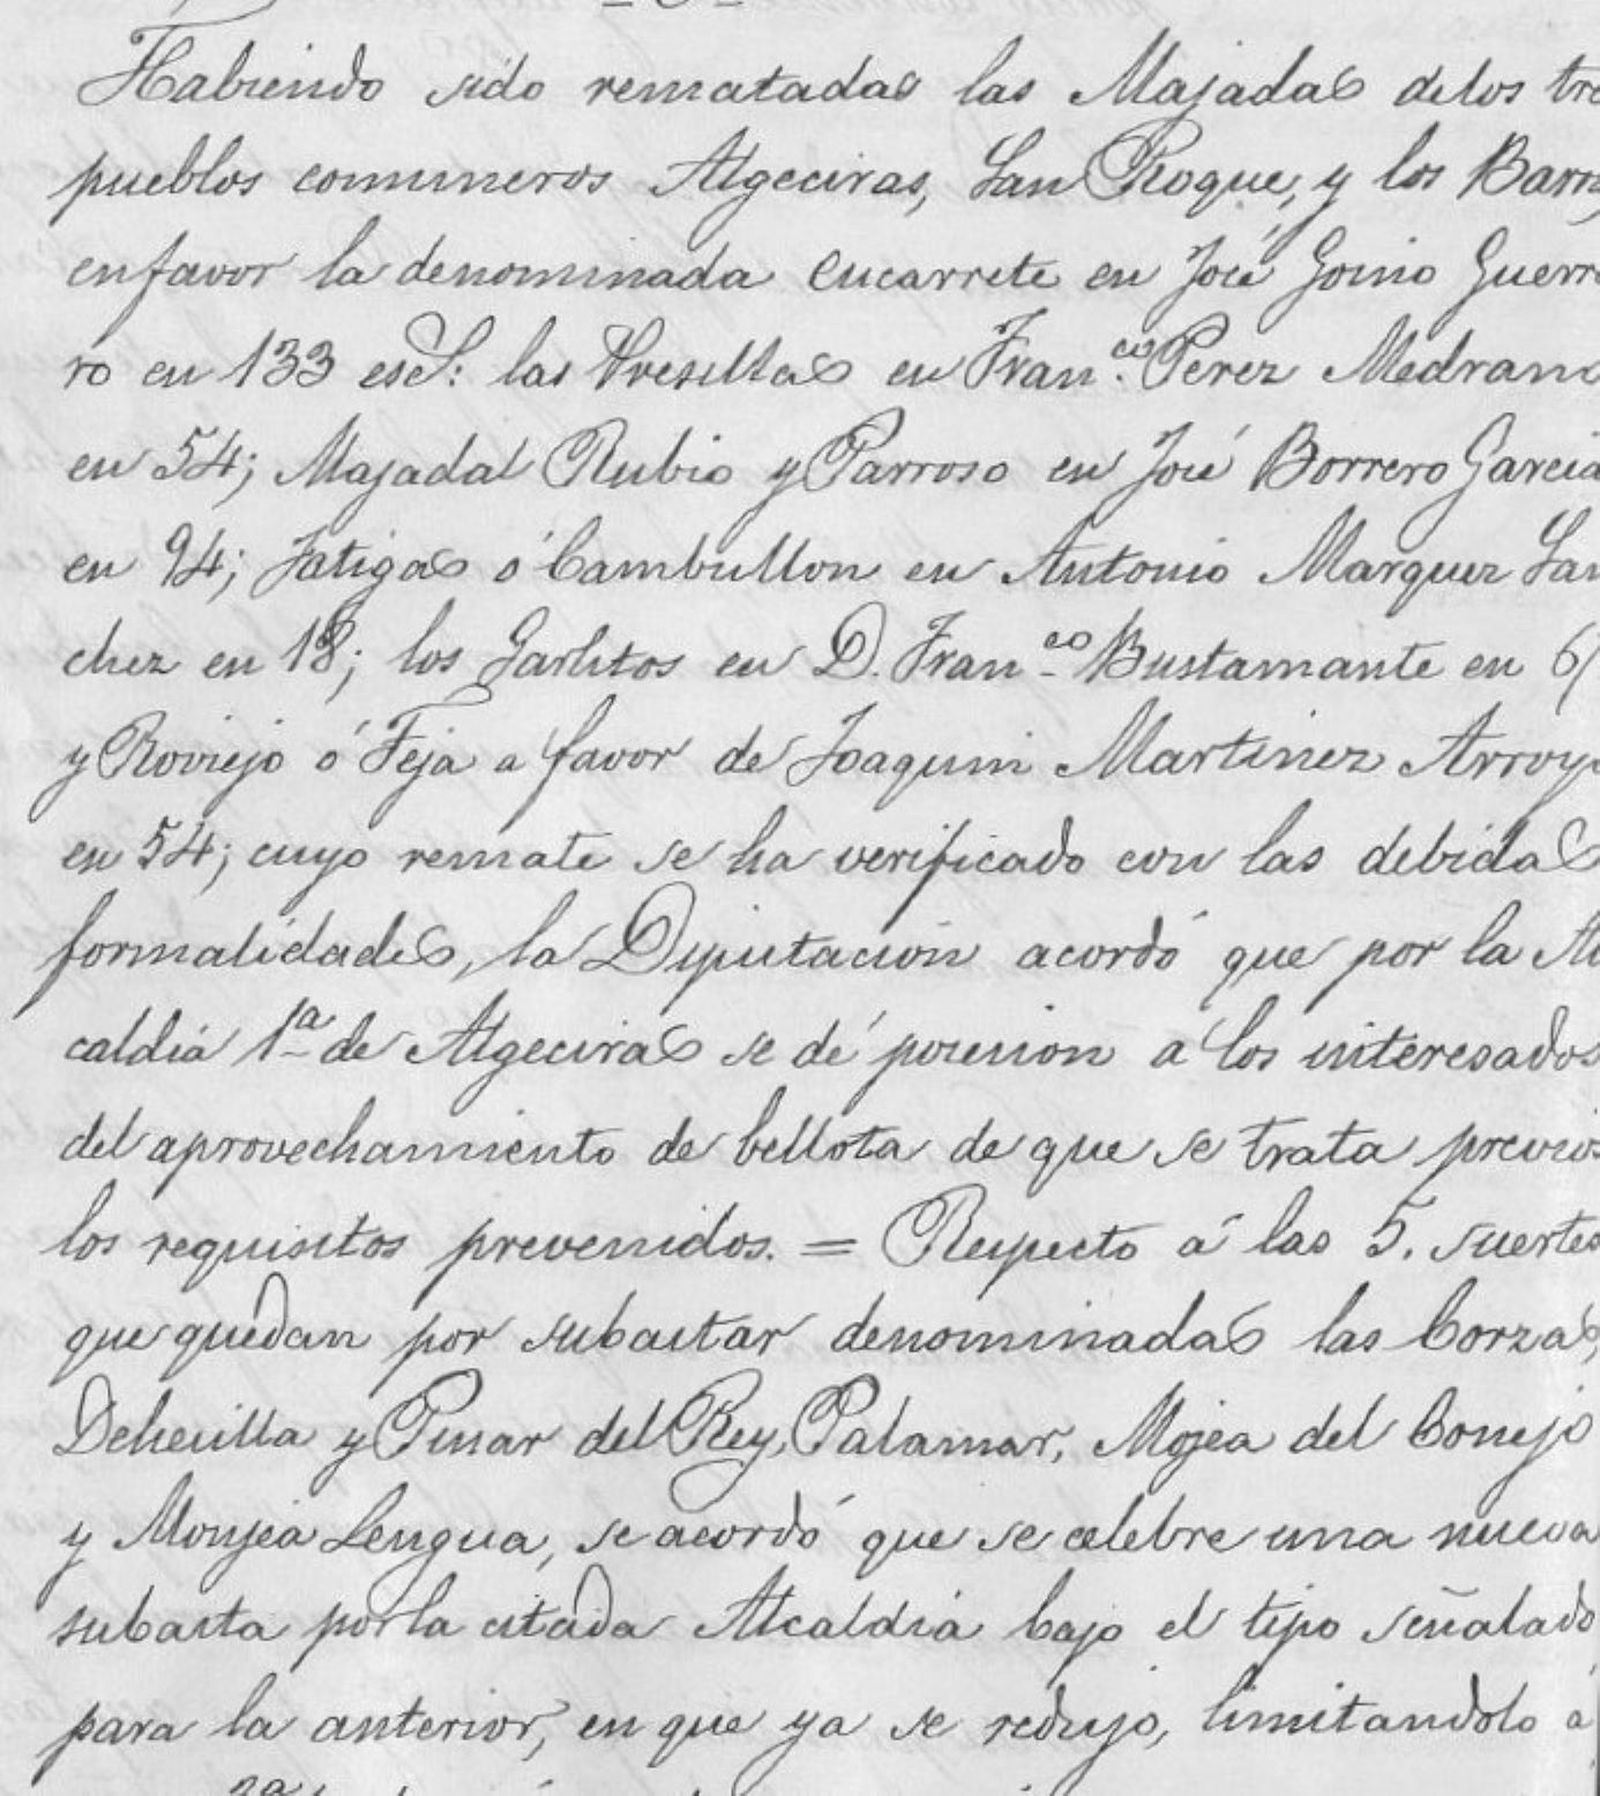 Habiendo sido rematadas las Majadas delos tre
pueblos comuneros Algeciras, San Roque, y los Barri
en favor la denominada Eucarrete en José Goino Guerre
ro en 133 esc.s: las Presillas en Fran.co Perez Medrano
en 54; Majadal Rubio y Parroso en José Borrero Garcia
en 94; Fatigas ó Cambullon en Antonio Marquez San
chez en 18; los Garlitos en D. Fran.co Bustamante en
y Roviejo ó Teja a favor de Joaquin Martinez Arroyo
en 54; cuyo remate se ha verificado con las debidas
formalidades, la Diputacion acordó que por la Al
caldia 1a de Algeciras se dé posesion á los interesados
del aprovechamiento de bellota de que se trata previos
los requisitos prevenidos. = Respecto á las 5. suertes
que quedan por subastar denominadas las Corzas,
Dehesilla y Pinar del Rey, Palamar, Mojea del Conejo
y Monjea Lengua, se acordó que se celebre una nueva
subasta por la citada Alcaldia bajo el tipo señalado
para la anterior, en que ya se redujo, limitandolo á